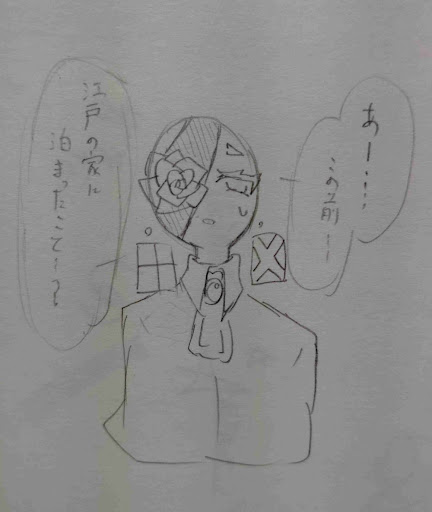 あー……
この前ー
江戸の家に
泊まったこてーつも